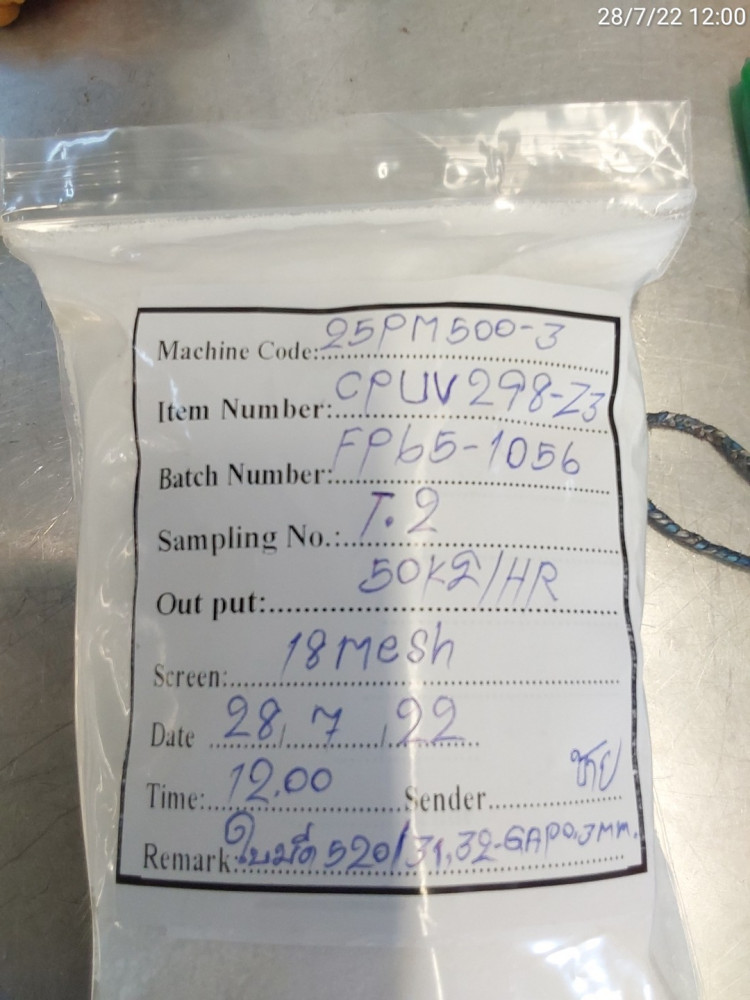 28/7/22 12:00
Machine Code: 25PM500-3
Item Number: CPUV298-Z3
Batch Number: FP65-1056
Sampling No.: T.2
Out put: 50kg/HR
Screen: 18mesh
Date 28/7/22
Time: 12.00 Sender ชัย
Remark: ใบมีด 520/31,32-GAP0.3mm.